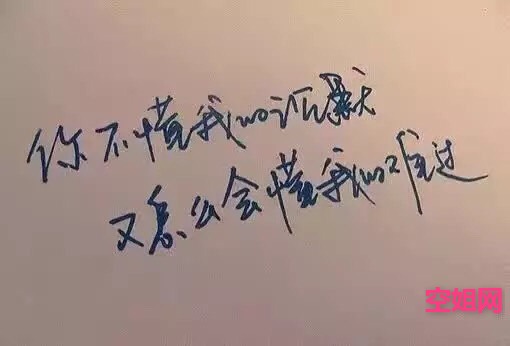 你不懂我的沉默
又怎么会懂我的难过
空姐网